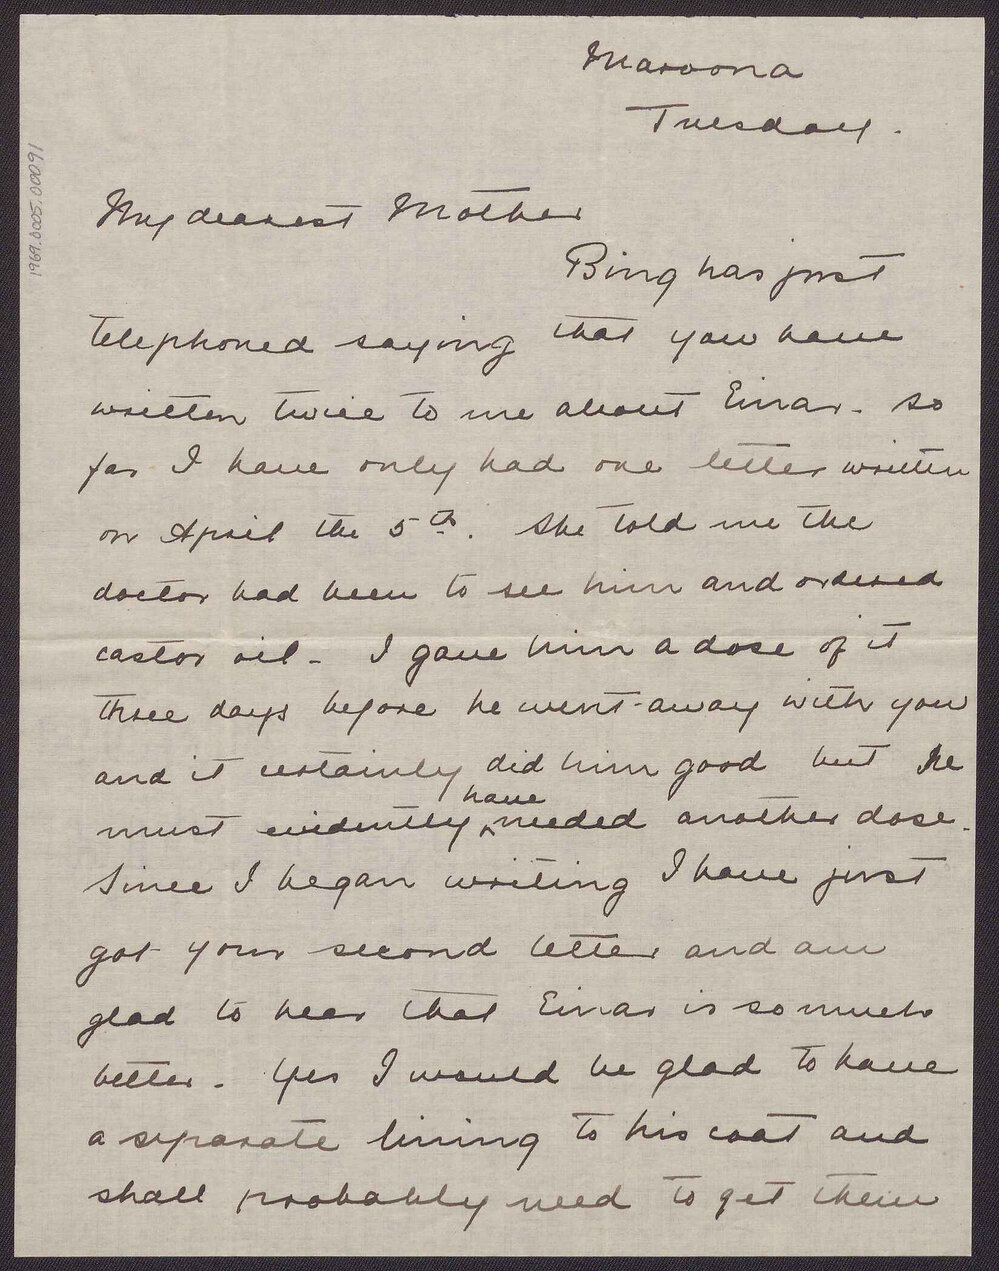 Maroona
Tuesday.
1969.0005.00091
My dearest Mother
Bing has just
telephoned saying that you have
written twice to me about Einar. so
far I have only had one letter written
on April the 5th. She told me the
doctor had been to see him and ordered
castor oil - I gave him a dose of it
three days before he went away with you
and it certainly did him good but he
must evidently have needed another dose.
Since I began writing I have just
got your second letter and am
glad to hear that Einar is so much
better. Yes I would be glad to have
a separate lining to his coat and
shall probably need to get them